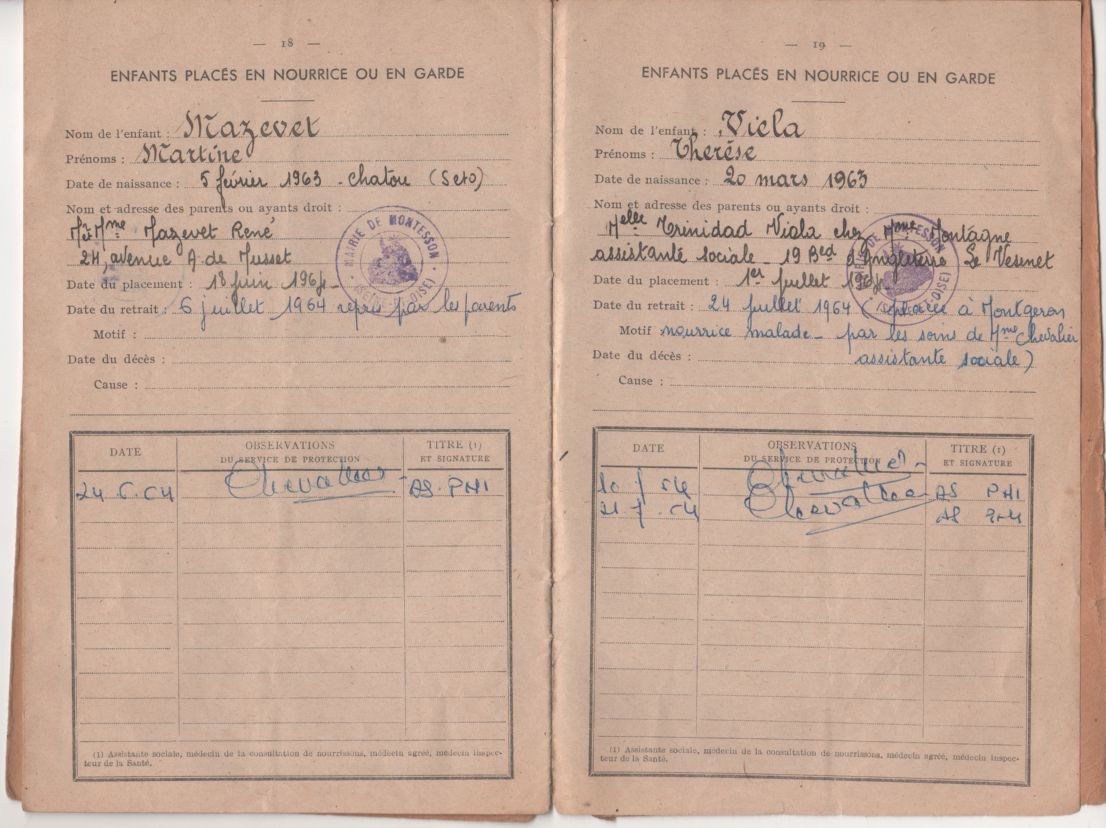 — 18 —
ENFANTS PLACÉS EN NOURRICE OU EN GARDE
Nom de l'enfant : Mazevet
Prénoms : Martine
Date de naissance : 5 février 1963 - Chatou (S et O)
Nom et adresse des parents ou ayants droit :
Mr et Mme Mazevet René
24, avenue A. de Musset
MAIRIE DE MONTESSON
(SEINE-&-OISE)
Date du placement : 18 juin 1964 -
Date du retrait : 6 juillet 1964 repris par les parents
Motif :
Date du décès :
Cause :
DATE
OBSERVATIONS
DU SERVICE DE PROTECTION
TITRE (1)
ET SIGNATURE
24.6.64 Chevalier AS. PMI
(1) Assistante sociale, médecin de la consultation de nourrissons, médecin agréé, médecin inspec-
teur de la Santé.
— 19 —
ENFANTS PLACÉS EN NOURRICE OU EN GARDE
Nom de l'enfant : Viela
Prénoms : Therése
Date de naissance : 20 mars 1963
Nom et adresse des parents ou ayants droit :
Melle Trinidad Viela chez Mme Montagne
assistante sociale - 19 Bed d'Angleterre Le Vesinet
MAIRIE DE MONTESSON
(SEINE-&-OISE)
Date du placement : 1er Juillet 1964
Date du retrait : 24 Juillet 1964 (placée à Montgeron
Motif nourrice malade - par les soins de Mme Chevalier
Date du décès : assistante sociale)
Cause :
DATE
OBSERVATIONS
DU SERVICE DE PROTECTION
TITRE (1)
ET SIGNATURE
10 7 64 Chevalier AS PMI
21.7.64 Chevalier AS PMI
(1) Assistante sociale, médecin de la consultation de nourrissons, médecin agréé, médecin inspec-
teur de la Santé.